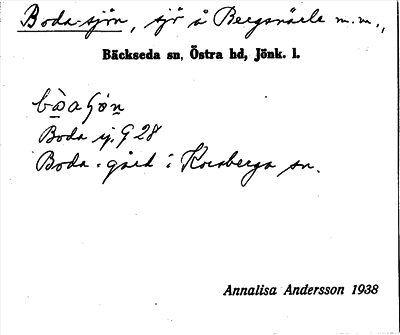 Boda-sjön, sjö å Bergsnärle m.m.,
Bäckseda sn, Östra hd, Jönk. l.
Boda sj. G 28
Boda - gård i Korsberga sn.
Annalisa Andersson 1938